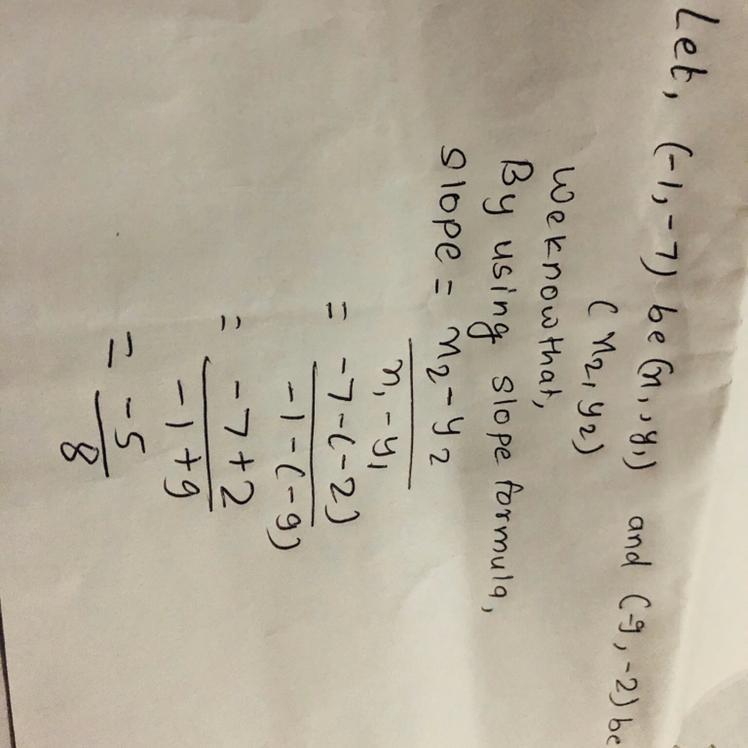 Let, (-1,-7) be (x1,y1) and (-9,-2) be
(x2,y2)
We know that,
By using slope formula,
Slope = x2-y2
x1-y1
= -7-(-2)
-1-(-9)
= -7+2
-1+9
= -5
8